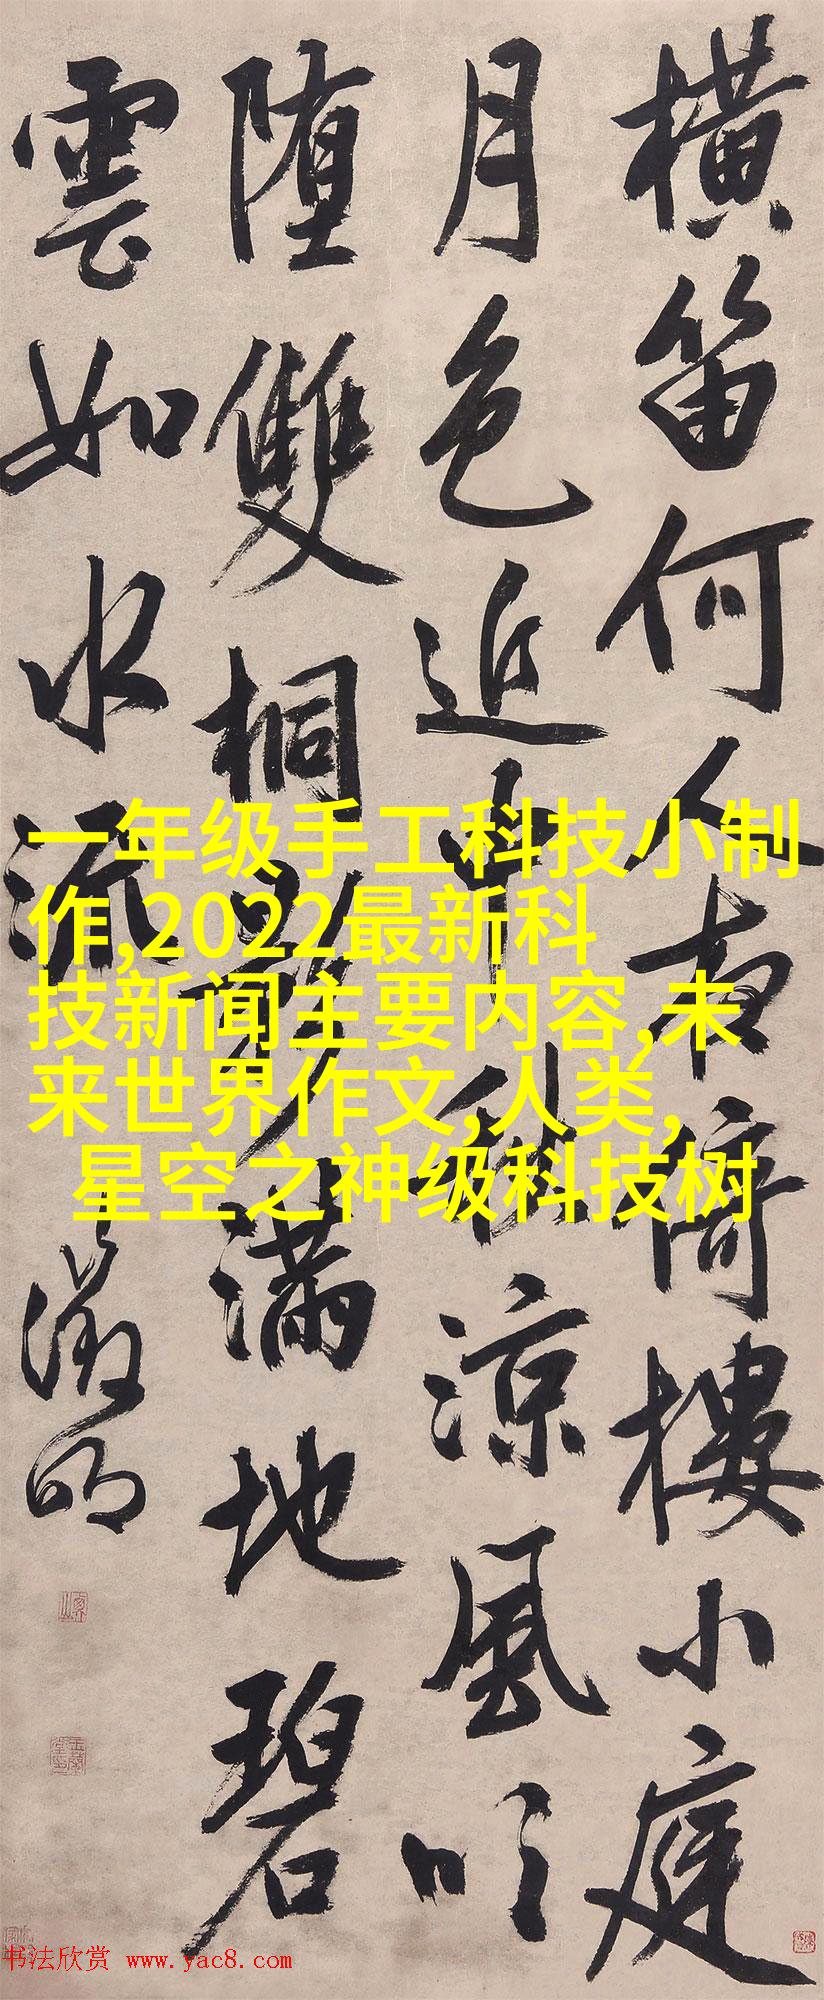 橫笛何人夜倚樓小庭
月色近中秋涼風吹
堕雙桐影滿地碧
雲如水流
徵明
一年级手工科技小制
作,2022最新科
技新闻主要内容,未
来世界作文,人类,
星空之神级科技树
书法欣赏 www.yac8.com